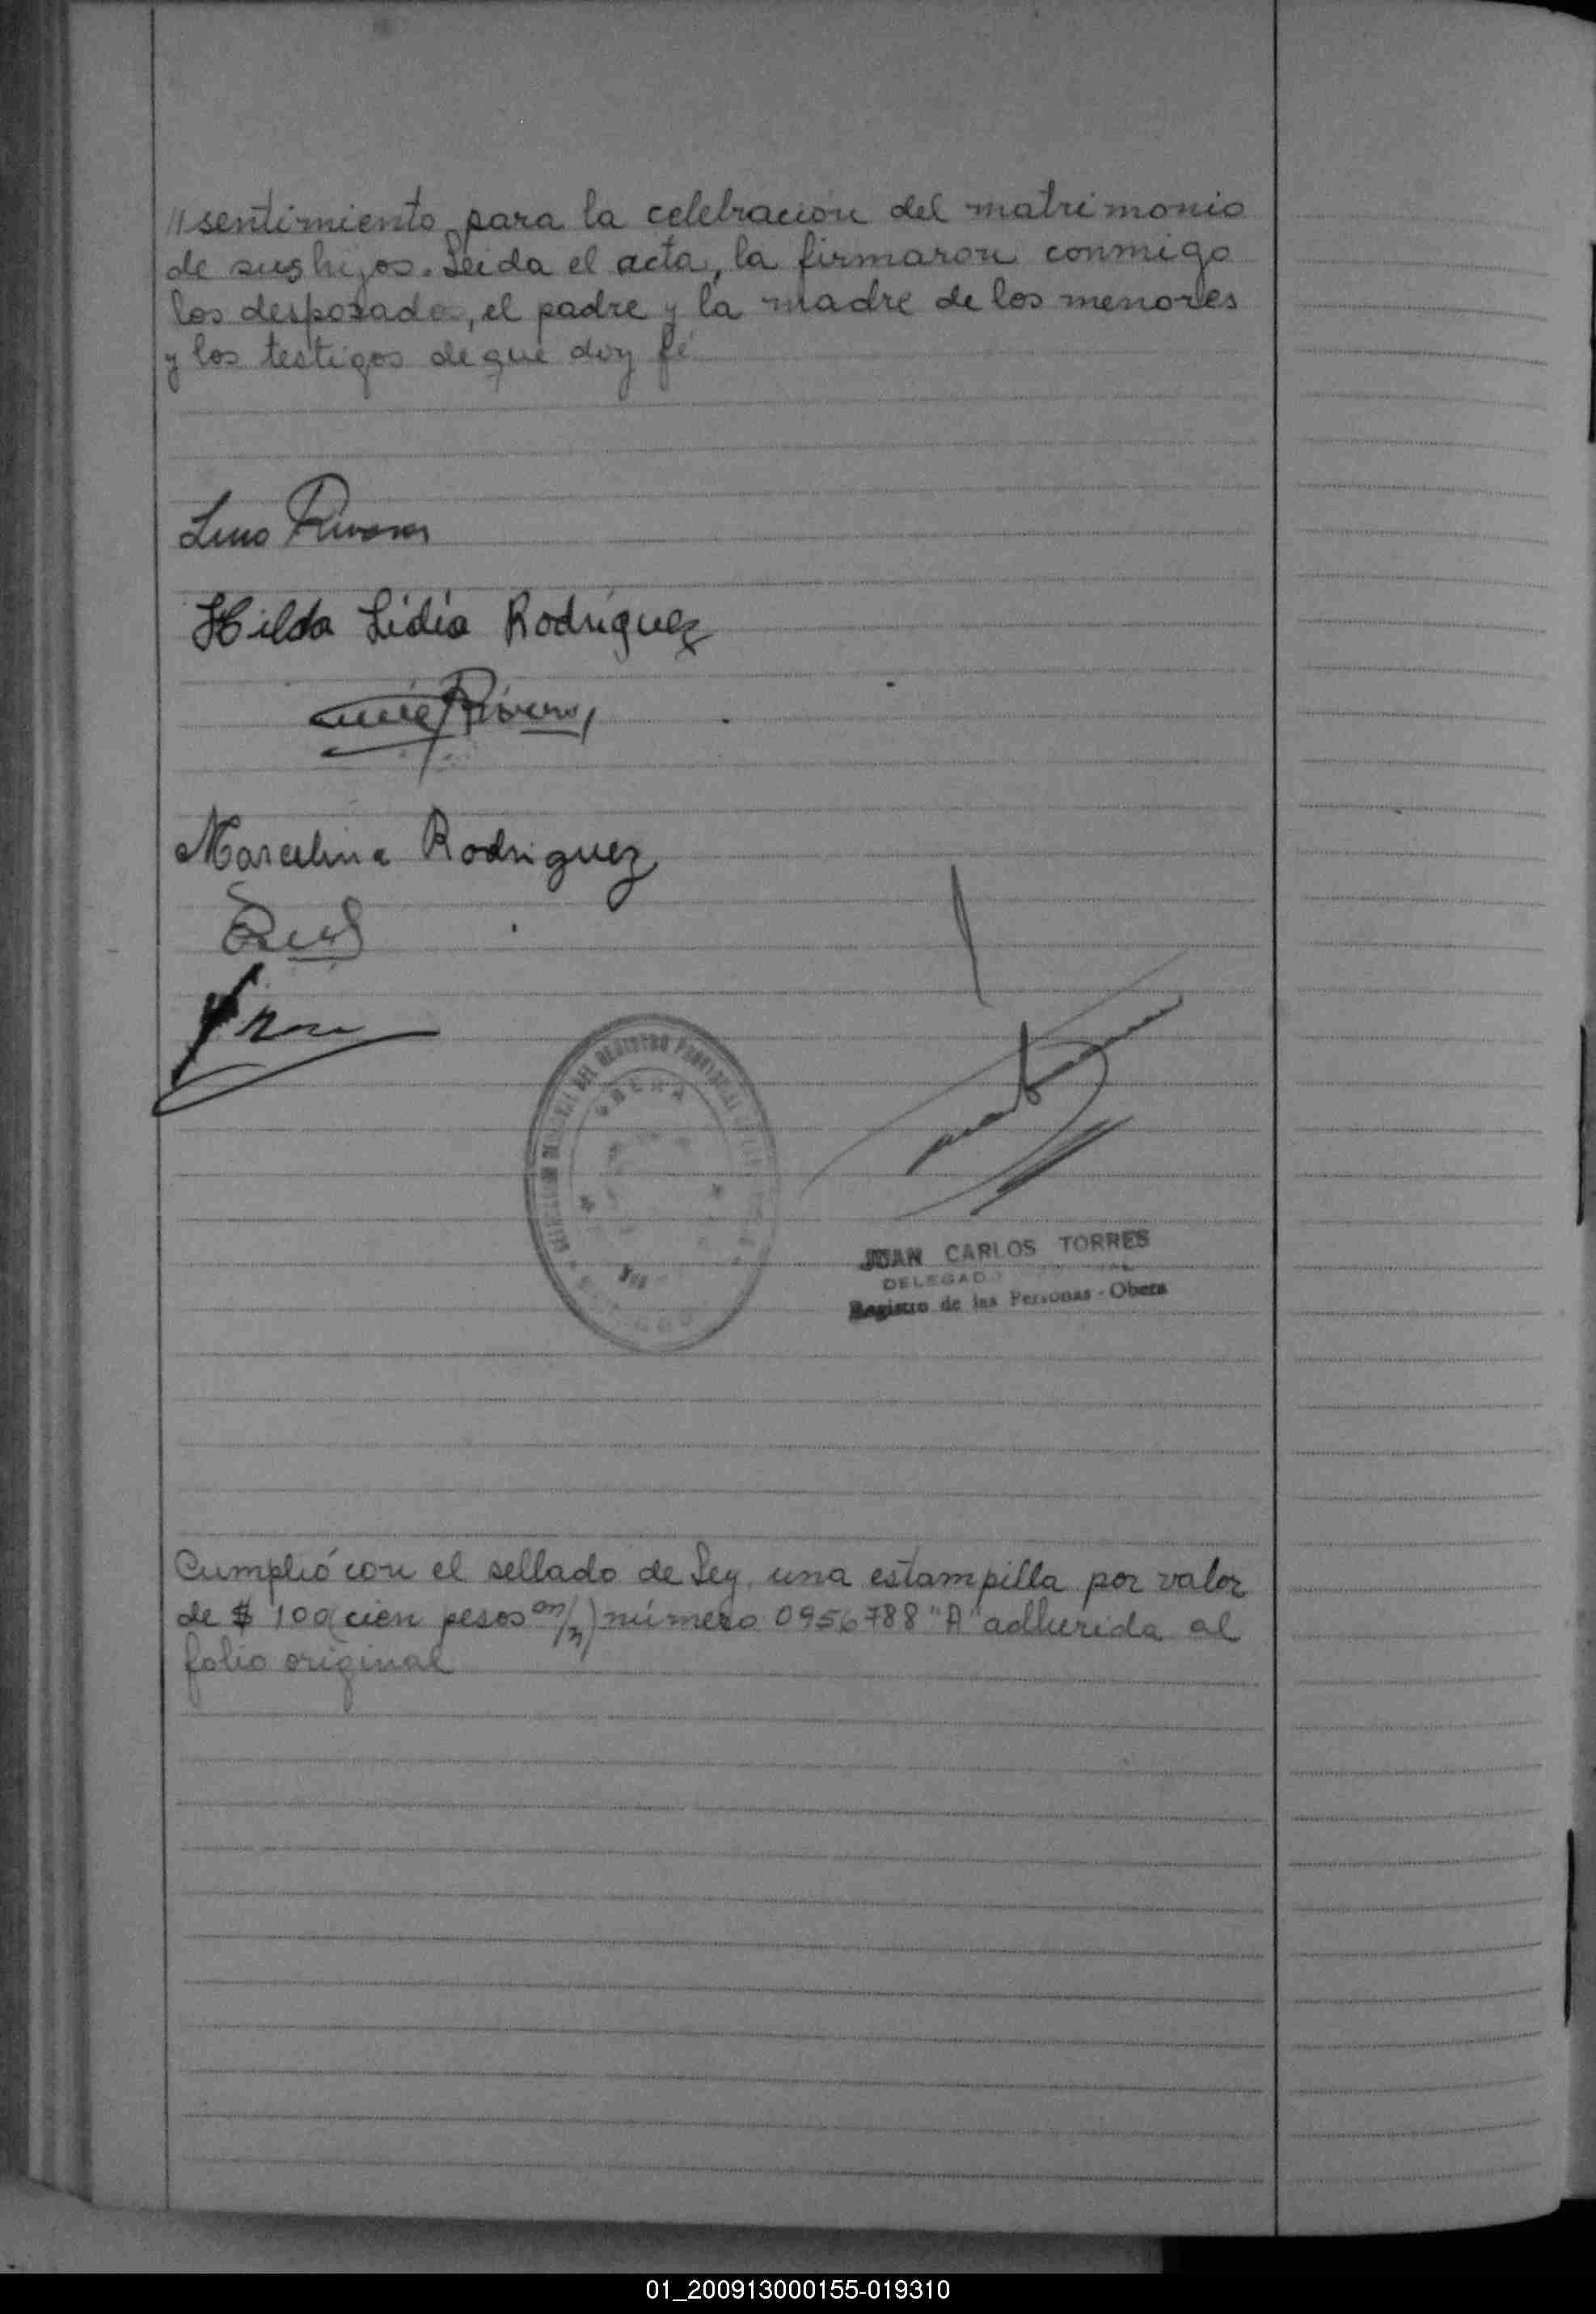 // sentimiento para la celebracion del matrimonio
de sus hijos. Leida el acta, la firmaron conmigo
los desposados, el padre y la madre de los menores
y los testigos de que doy fé
Lino
Hilda Lidia Rodríguez
Marcelina Rodriguez
OBERA
JUAN CARLOS TORRES
DELEGADO
Registro de las Personas - Obera
Cumplió con el sellado de Ley, una estampilla por valor
de $ 100 (cien pesos m/n) número 0956788 "A" adherida al
folio original
01_200913000155-019310